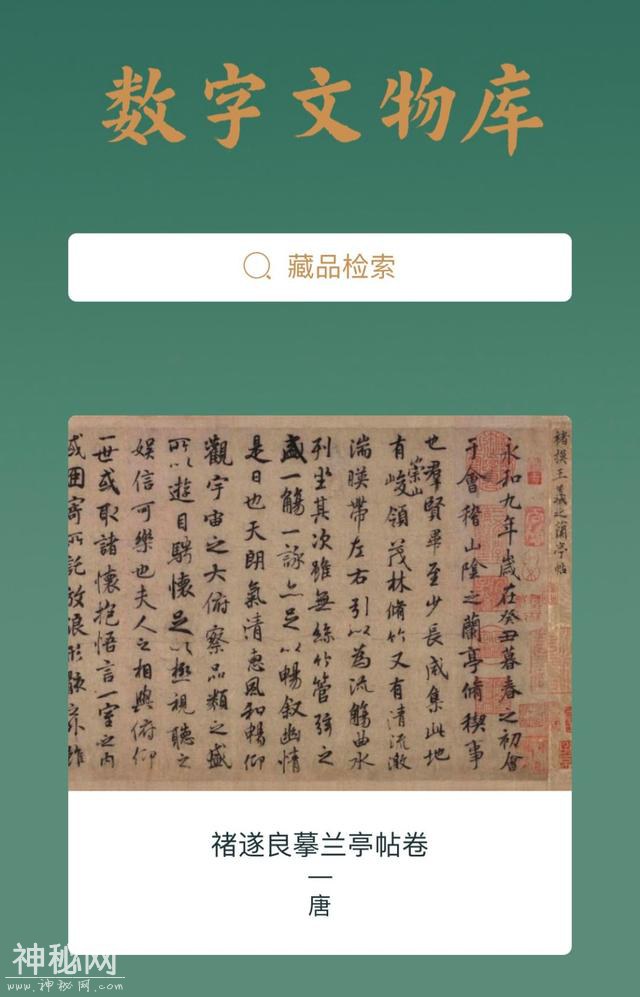 数字文物库
藏品检索
褚摸王羲之蘭亭帖
永和九年歲在癸丑暮春之初會
于會稽山陰之蘭亭脩稧事
也羣賢畢至少長咸集此地
有崇山峻領茂林脩竹又有清流激
湍暎帶左右引以為流觴曲水
列坐其次雖無絲竹管弦之
盛一觴一詠亦足以暢叙幽情
是日也天朗氣清惠風和暢仰
觀宇宙之大俯察品類之盛
所以遊目騁懷足以極視聽之
娛信可樂也夫人之相與俯仰
一世或取諸懷抱悟言一室之內
或因寄所託放浪形骸之外雖
褚遂良摹兰亭帖卷
—
唐
神秘网
www.神秘网.com